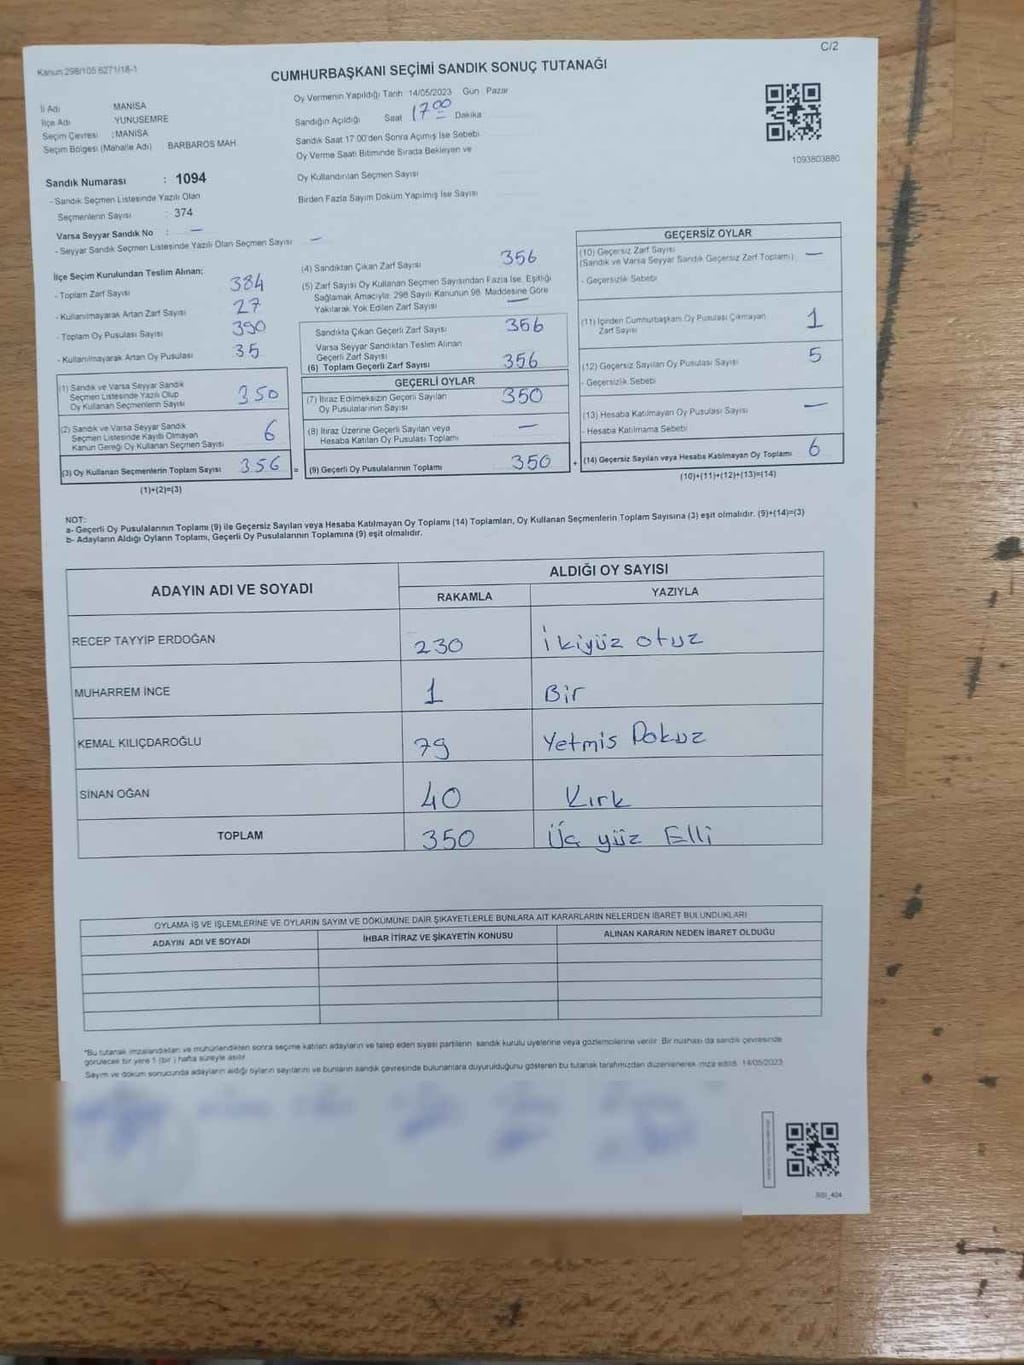 C/2
Kanun 298/105 6271/18-1
CUMHURBAŞKANI SEÇİMİ SANDIK SONUÇ TUTANAĞI
İl Adı MANİSA
İlçe Adı YUNUSEMRE
Seçim Çevresi : MANİSA
Seçim Bölgesi (Mahalle Adı) BARBAROS MAH.
Oy Vermenin Yapıldığı Tarih 14/05/2023 Gün Pazar
Sandığın Açıldığı Saat 17 00 Dakika
Sandık Saat 17:00'den Sonra Açımış İse Sebebi
Oy Verme Saati Bitiminde Sırada Bekleyen ve
Oy Kullandırılan Seçmen Sayısı
Birden Fazla Sayım Döküm Yapılmış İse Sayısı
1093803880
Sandık Numarası : 1094
- Sandık Seçmen Listesinde Yazılı Olan
Seçmenlerin Sayısı : 374
Varsa Seyyar Sandık No : —
- Seyyar Sandık Seçmen Listesinde Yazılı Olan Seçmen Sayısı —
İlçe Seçim Kurulundan Teslim Alınan;
- Toplam Zarf Sayısı 384
- Kullanılmayarak Artan Zarf Sayısı 27
- Toplam Oy Pusulası Sayısı 390
- Kullanılmayarak Artan Oy Pusulası 35
(1) Sandık ve Varsa Seyyar Sandık
Seçmen Listesinde Yazılı Olup
Oy Kullanan Seçmenlerin Sayısı 350
(2) Sandık ve Varsa Seyyar Sandık
Seçmen Listesinde Kayıtlı Olmayan
Kanun Gereği Oy Kullanan Seçmen Sayısı 6
(3) Oy Kullanan Seçmenlerin Toplam Sayısı 356 =
(1)+(2)=(3)
(4) Sandıktan Çıkan Zarf Sayısı 356
(5) Zarf Sayısı Oy Kullanan Seçmen Sayısından Fazla İse, Eşitliği
Sağlamak Amacıyla; 298 Sayılı Kanunun 98. Maddesine Göre
Yakılarak Yok Edilen Zarf Sayısı —
Sandıkta Çıkan Geçerli Zarf Sayısı 356
Varsa Seyyar Sandıktan Teslim Alınan
Geçerli Zarf Sayısı
(6) Toplam Geçerli Zarf Sayısı 356
GEÇERLİ OYLAR
(7) İtiraz Edilmeksizin Geçerli Sayılan
Oy Pusulalarının Sayısı 350
(8) İtiraz Üzerine Geçerli Sayılan veya
Hesaba Katılan Oy Pusulası Toplamı —
(9) Geçerli Oy Pusulalarının Toplamı 350 +
GEÇERSİZ OYLAR
(10) Geçersiz Zarf Sayısı
(Sandık ve Varsa Seyyar Sandık Geçersiz Zarf Toplamı) —
- Geçersizlik Sebebi
(11) İçinden Cumhurbaşkanı Oy Pusulası Çıkmayan
Zarf Sayısı 1
(12) Geçersiz Sayılan Oy Pusulası Sayısı 5
- Geçersizlik Sebebi
(13) Hesaba Katılmayan Oy Pusulası Sayısı —
- Hesaba Katılmama Sebebi
(14) Geçersiz Sayılan veya Hesaba Katılmayan Oy Toplamı 6
(10)+(11)+(12)+(13)=(14)
NOT:
a- Geçerli Oy Pusulalarının Toplamı (9) ile Geçersiz Sayılan veya Hesaba Katılmayan Oy Toplamı (14) Toplamları, Oy Kullanan Seçmenlerin Toplam Sayısına (3) eşit olmalıdır. (9)+(14)=(3)
b- Adayların Aldığı Oyların Toplamı, Geçerli Oy Pusulalarının Toplamına (9) eşit olmalıdır.
ADAYIN ADI VE SOYADI ALDIĞI OY SAYISI
RAKAMLA YAZIYLA
RECEP TAYYİP ERDOĞAN 230 ikiyüz otuz
MUHARREM İNCE 1 Bir
KEMAL KILIÇDAROĞLU 79 Yetmis Dokuz
SİNAN OĞAN 40 Kırk
TOPLAM 350 Üç yüz Elli
OYLAMA İŞ VE İŞLEMLERİNE VE OYLARIN SAYIM VE DÖKÜMÜNE DAİR ŞİKAYETLERLE BUNLARA AİT KARARLARIN NELERDEN İBARET BULUNDUKLARI
ADAYIN ADI VE SOYADI İHBAR İTİRAZ VE ŞİKAYETİN KONUSU ALINAN KARARIN NEDEN İBARET OLDUĞU
*Bu tutanak imzalandıktan ve mühürlendikten sonra seçime katılan adayların ve talep eden siyasi partilerin sandık kurulu üyelerine veya gözlemcilerine verilir. Bir nüshası da sandık çevresinde
görülecek bir yere 1 (bir) hafta süreyle asılır.
Sayım ve döküm sonucunda adayların aldığı oyların sayılarını ve bunların sandık çevresinde bulunanlara duyurulduğunu gösteren bu tutanak tarafımızdan düzenlenerek imza edildi. 14/05/2023